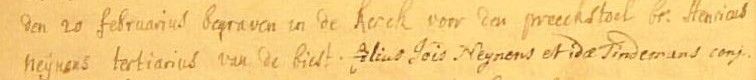 den 20 februarius begraven in de kerck voor den preeckstoel br. Henricus
neijnens tertiarius van de biest. filius Jois Neynens et idæ Tindemans conj.